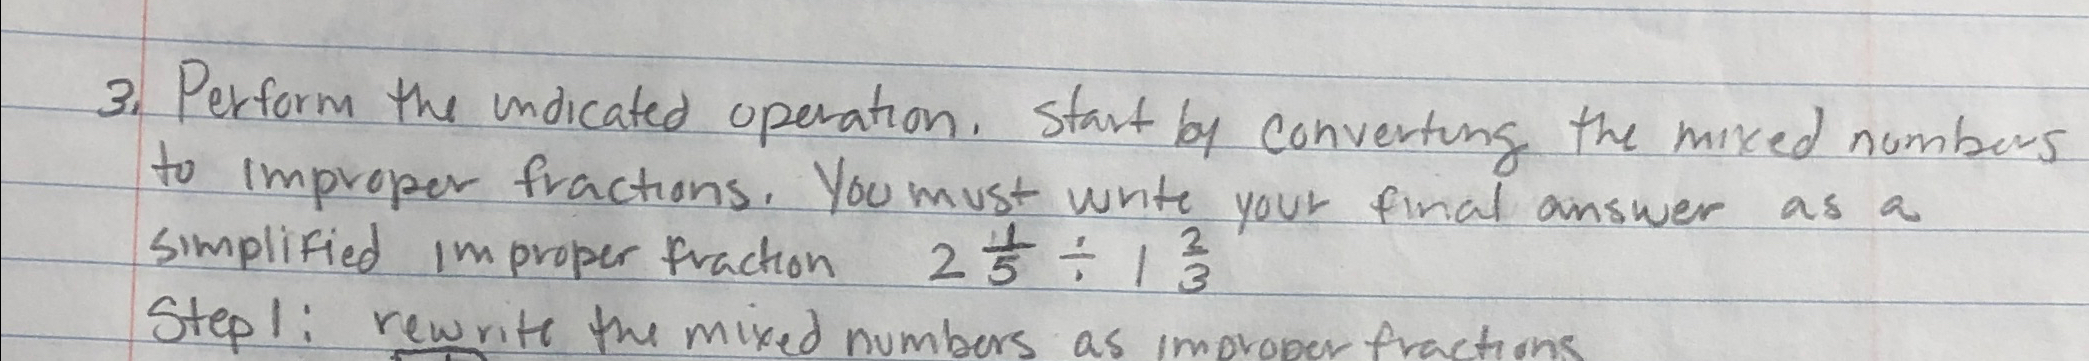 3. Perform the indicated operation. Start by converting the mixed numbers
to improper fractions. You must write your final answer as a
simplified improper fraction 2 1/5 ÷ 1 2/3
Step 1: rewrite the mixed numbers as improper fractions